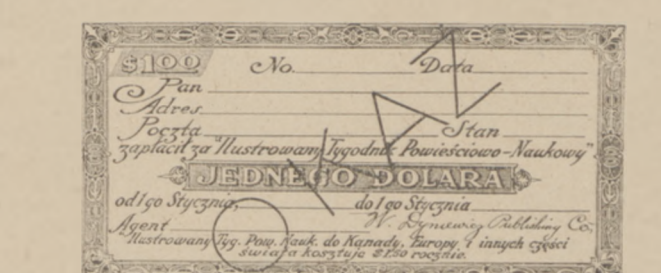 $1.00 No. Data
Pan
Adres
Poczta Stan
zapłacił za "Ilustrowany Tygodnik Powieściowo-Naukowy"
JEDNEGO DOLARA
od 1go Stycznia, do 1go Stycznia
W. Dyniewicz Publishing Co,
Agent
Ilustrowany Tyg. Pow. Nauk. do Kanady, Europy, i innych części
świata kosztuje $1.50 rocznie.